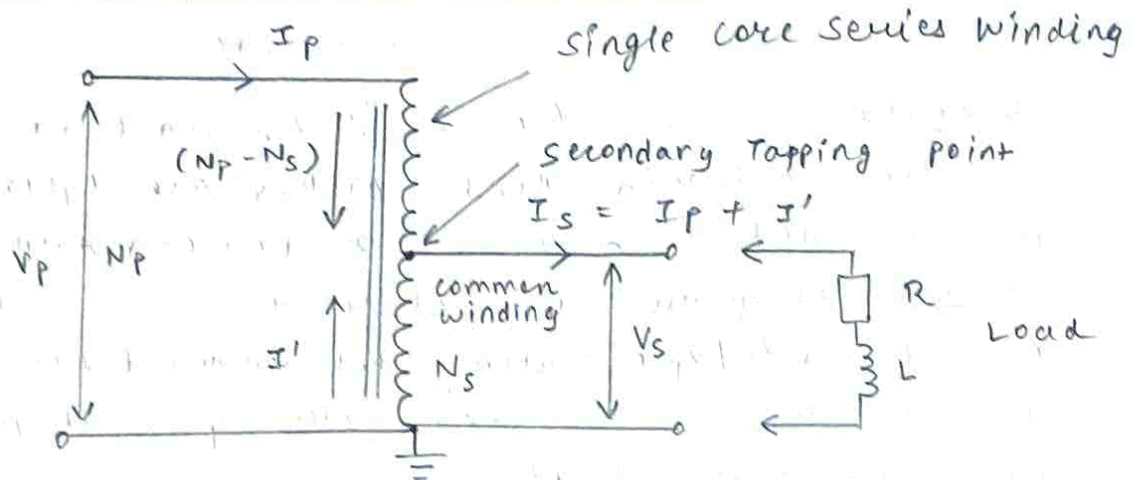 Ip
Single core series winding
(Np - Ns)
Secondary Tapping point
Is = Ip + I'
Vp
Np
common
winding
R
Load
I'
Vs
Ns
L